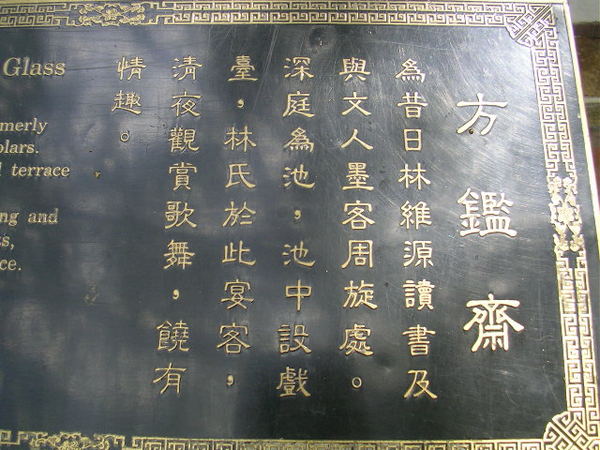 方鑑齋
為昔日林維源讀書及
與文人墨客周旋處。
深庭為池，池中設戲
臺，林氏於此宴客，
清夜觀賞歌舞，饒有
情趣。
Glass
merly
olars.
terrace
ng and
ts,
ce.